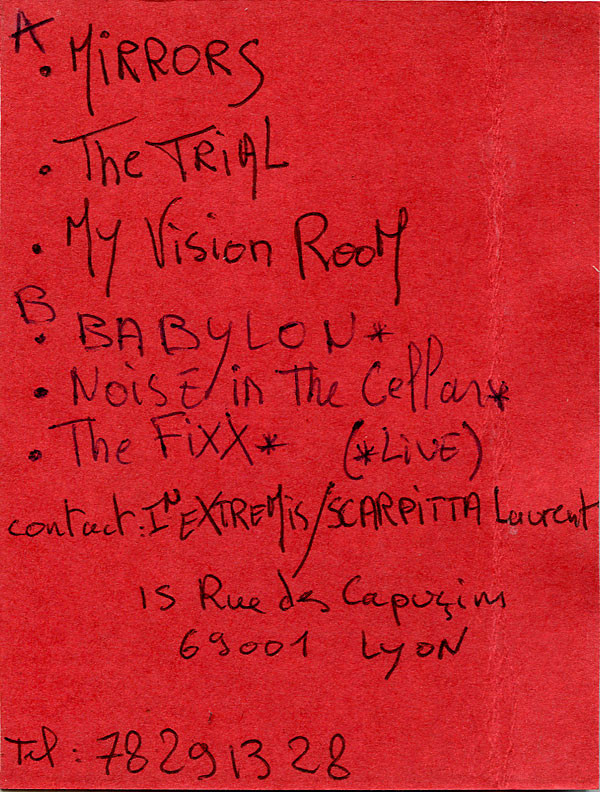 A
• MiRRORS
• The TRIAL
• My Vision ROOM
B
• BABYLON*
• NOiSE in The Cellar*
• The FiXX* (*LiVE)
contact: IN EXTREMiS/SCARPiTTA Laurent
15 Rue des Capuçins
69001 LYON
Tel : 78 29 13 28